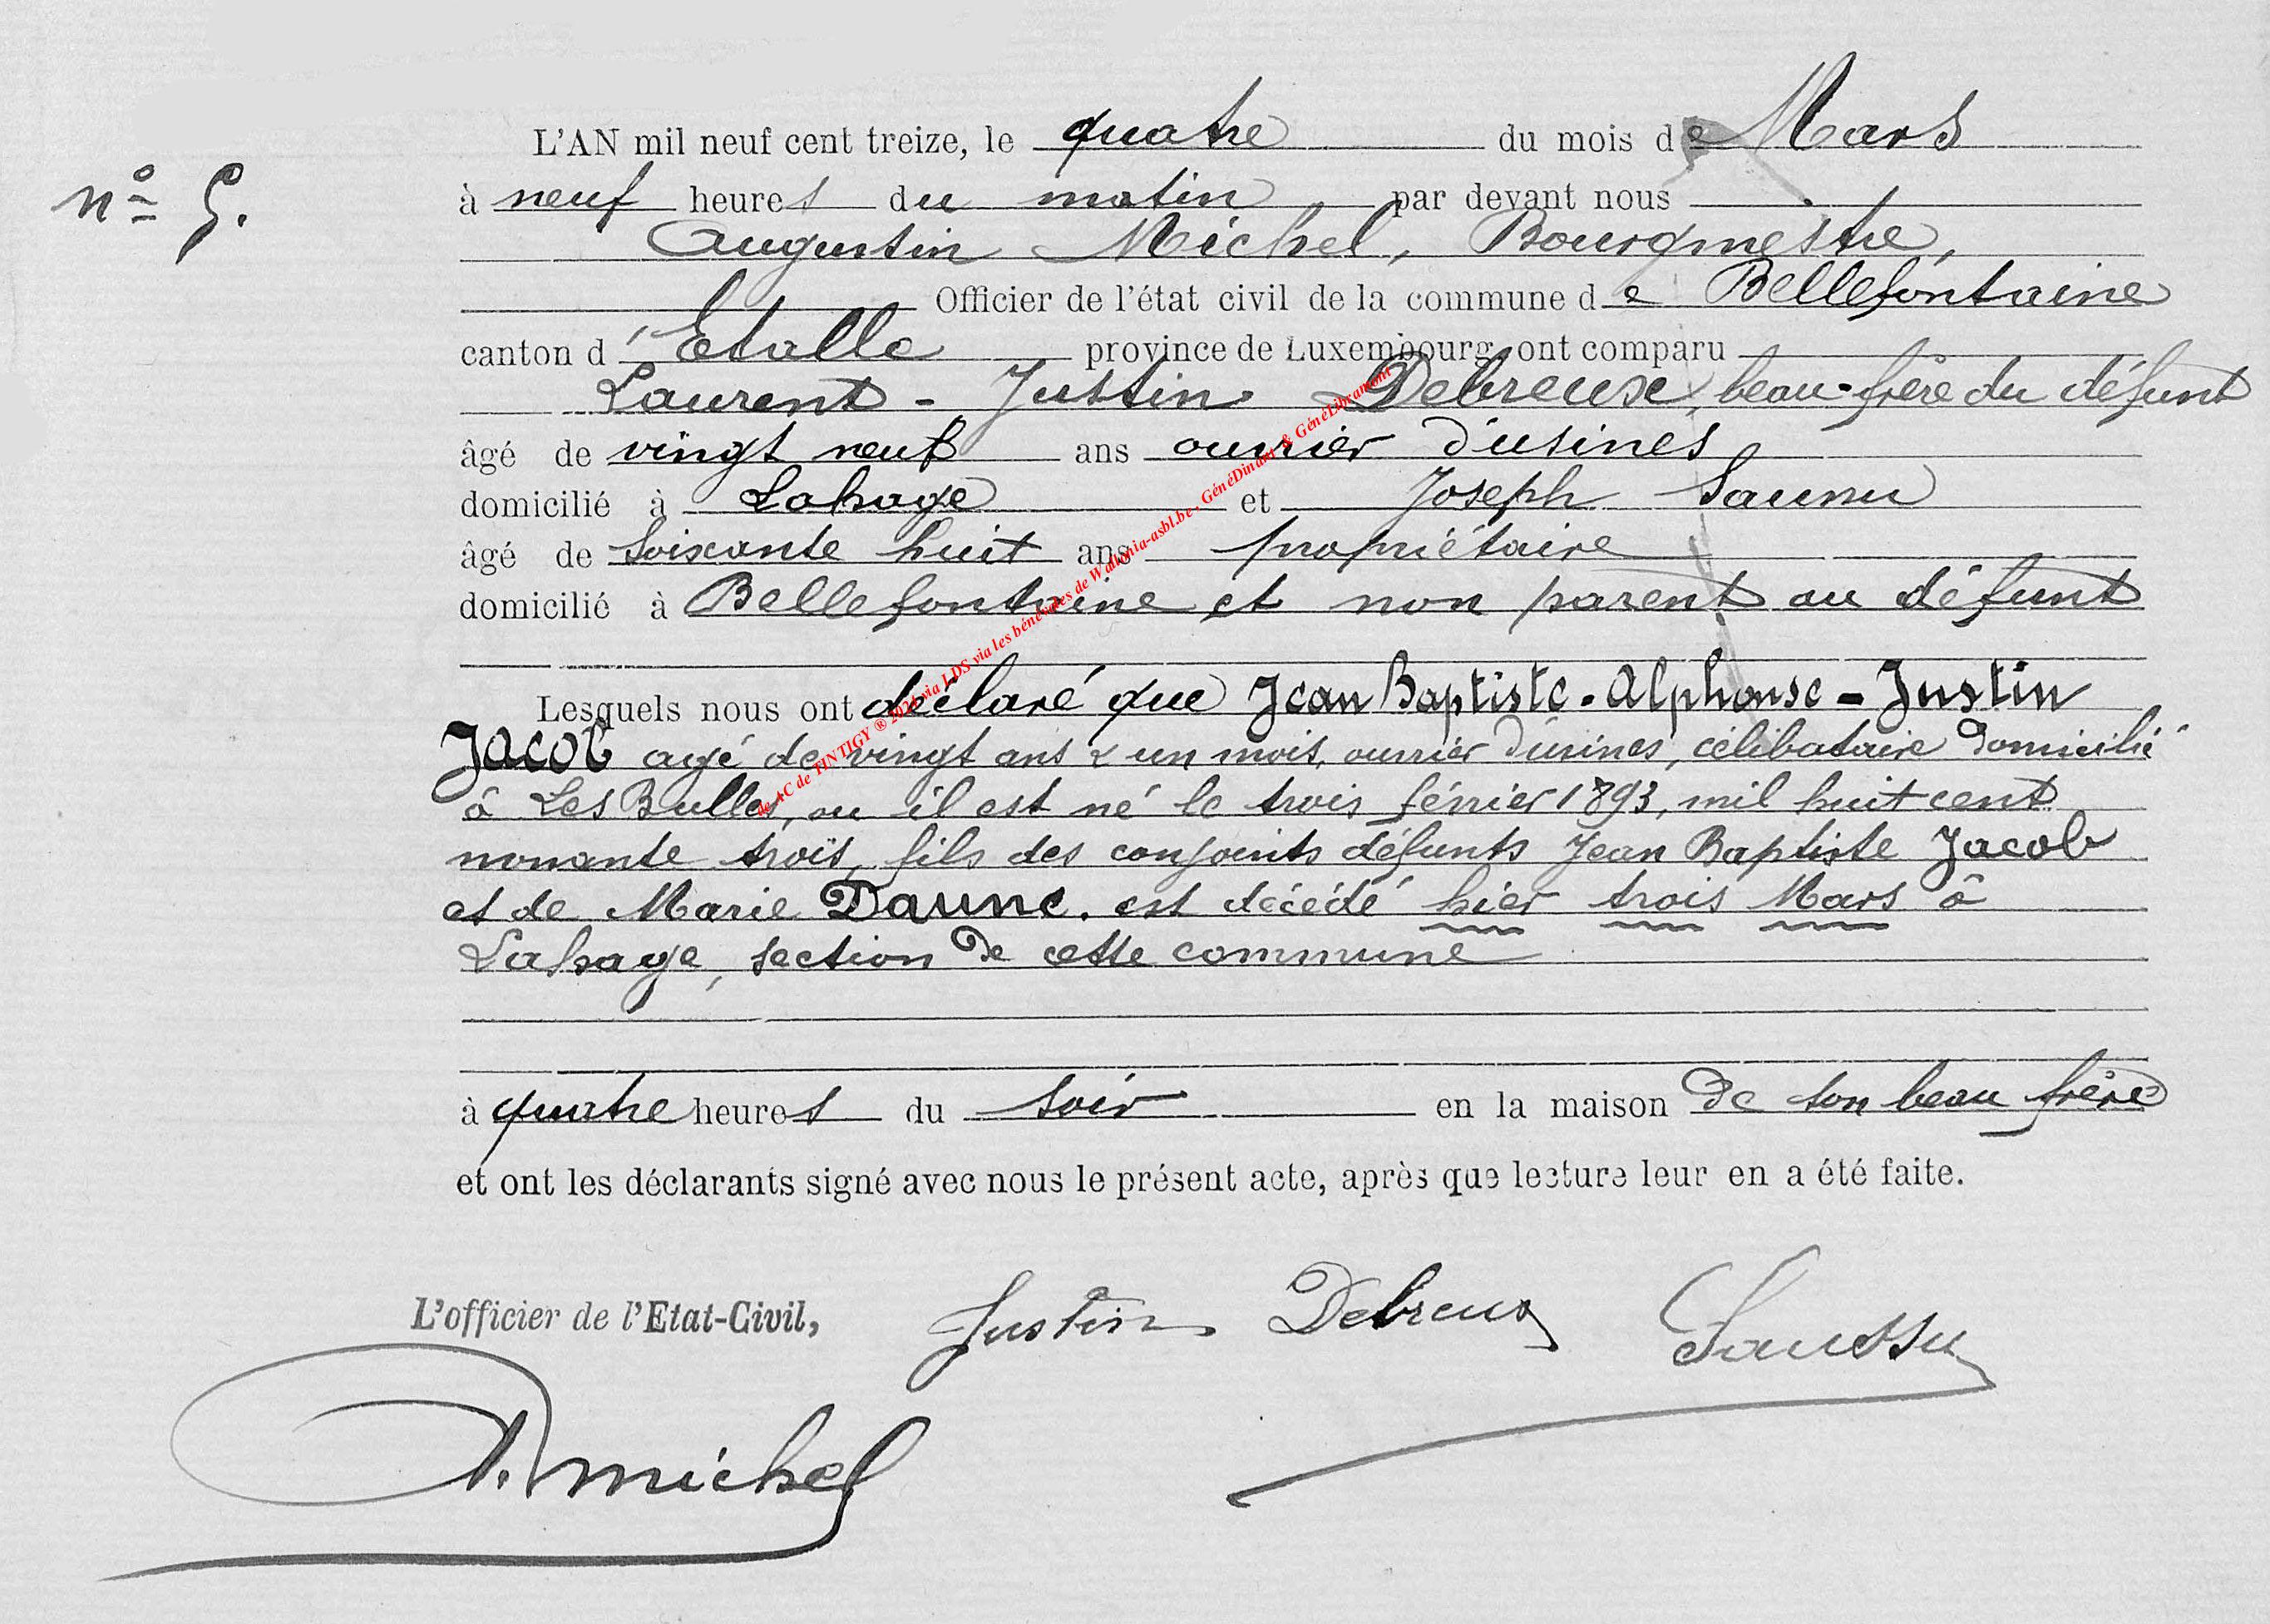 L'AN mil neuf cent treize, le quatre du mois de Mars
n° 5.
à neuf heures du matin par devant nous
Augustin Michel, Bourgmestre,
Officier de l'état civil de la commune de Bellefontaine
canton d'Etalle province de Luxembourg ont comparu
Laurent - Justin Debreux, beau-frère du défunt
âgé de vingt neuf ans ouvrier d'usines
domicilié à Lahage et Joseph
âgé de soixante huit ans propriétaire
domicilié à Bellefontaine et non parent au défunt
Lesquels nous ont déclaré que Jean Baptiste-Alphonse-Justin
Jacob agé de vingt ans & un mois, ouvrier d'usines, célibataire domicilié
à Les Bulles, ou il est né le trois février 1893, mil huit cent
nonante trois, fils des conjoints défunts Jean Baptiste Jacob
et de Marie Daune. est décédé hier trois Mars à
Lahage, section de cette commune
à quatre heures du soir en la maison de son beau frère
et ont les déclarants signé avec nous le présent acte, après que lecture leur en a été faite.
L'officier de l'Etat-Civil, Justin Debreux Saussu
A. michel
de AC de TINTIGY ® 2024 via LDS via les bénévoles de Wallonia-asbl.be, GénéDinant & GénéLibramont